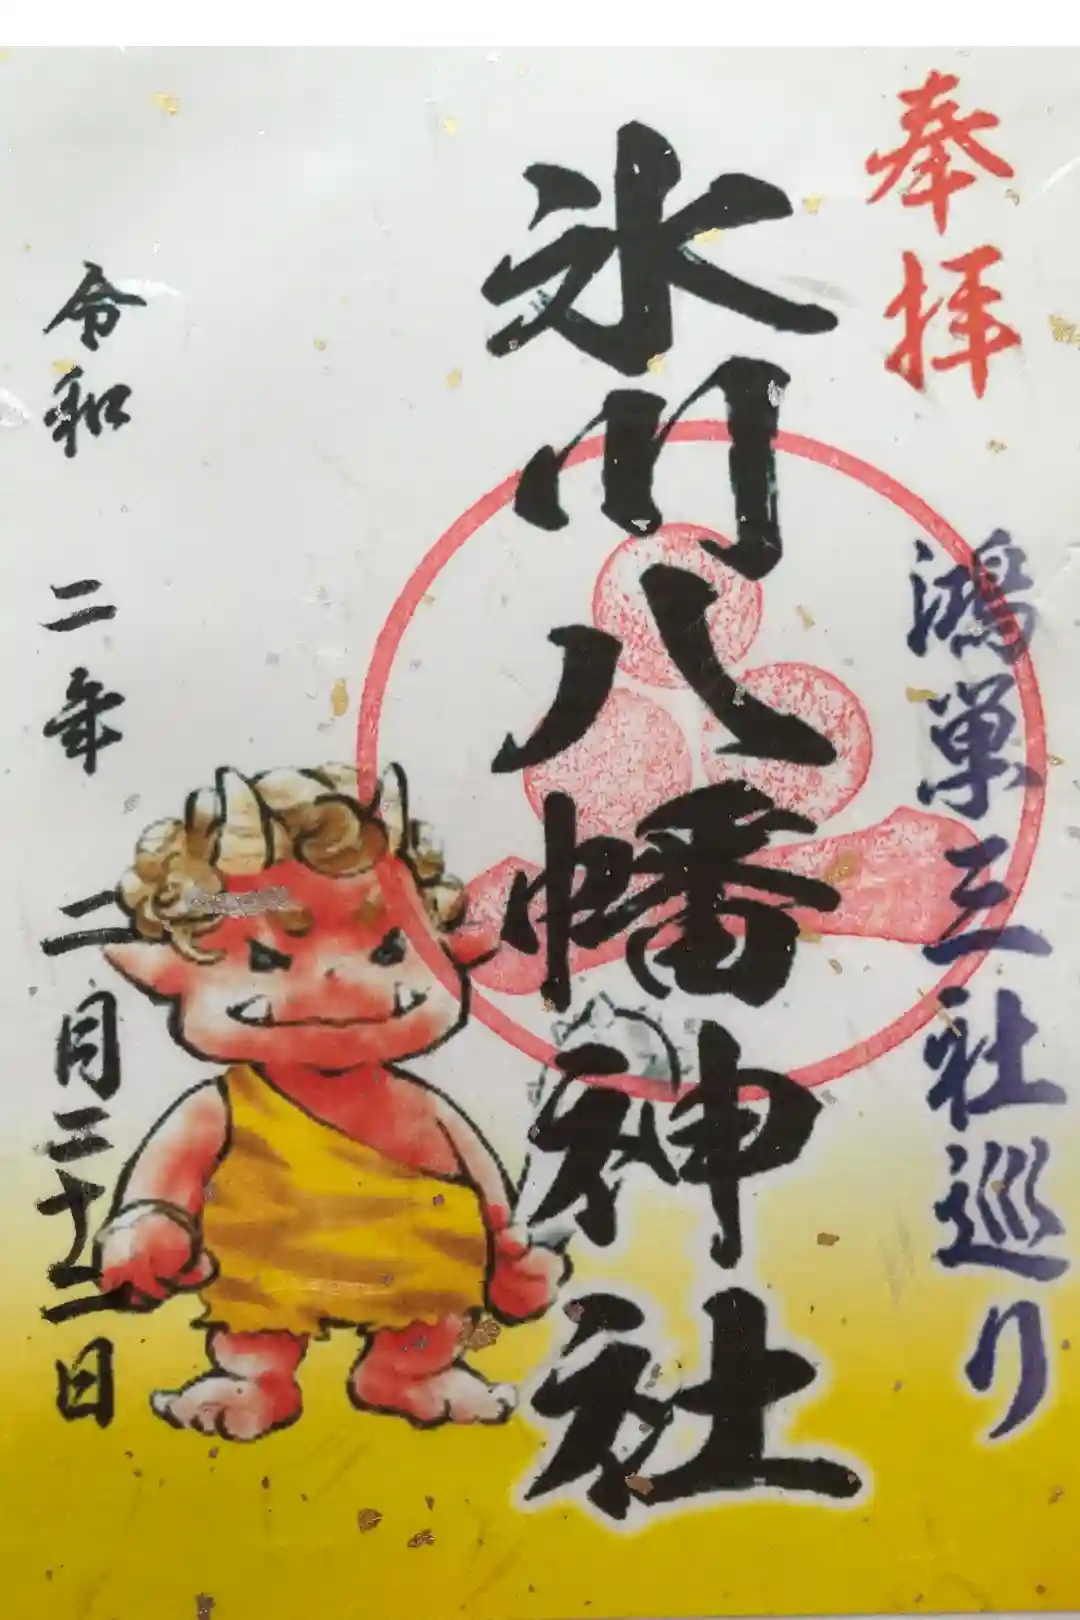 奉拝
鴻巣三社巡り
氷川八幡神社
令和二年二月二十二日